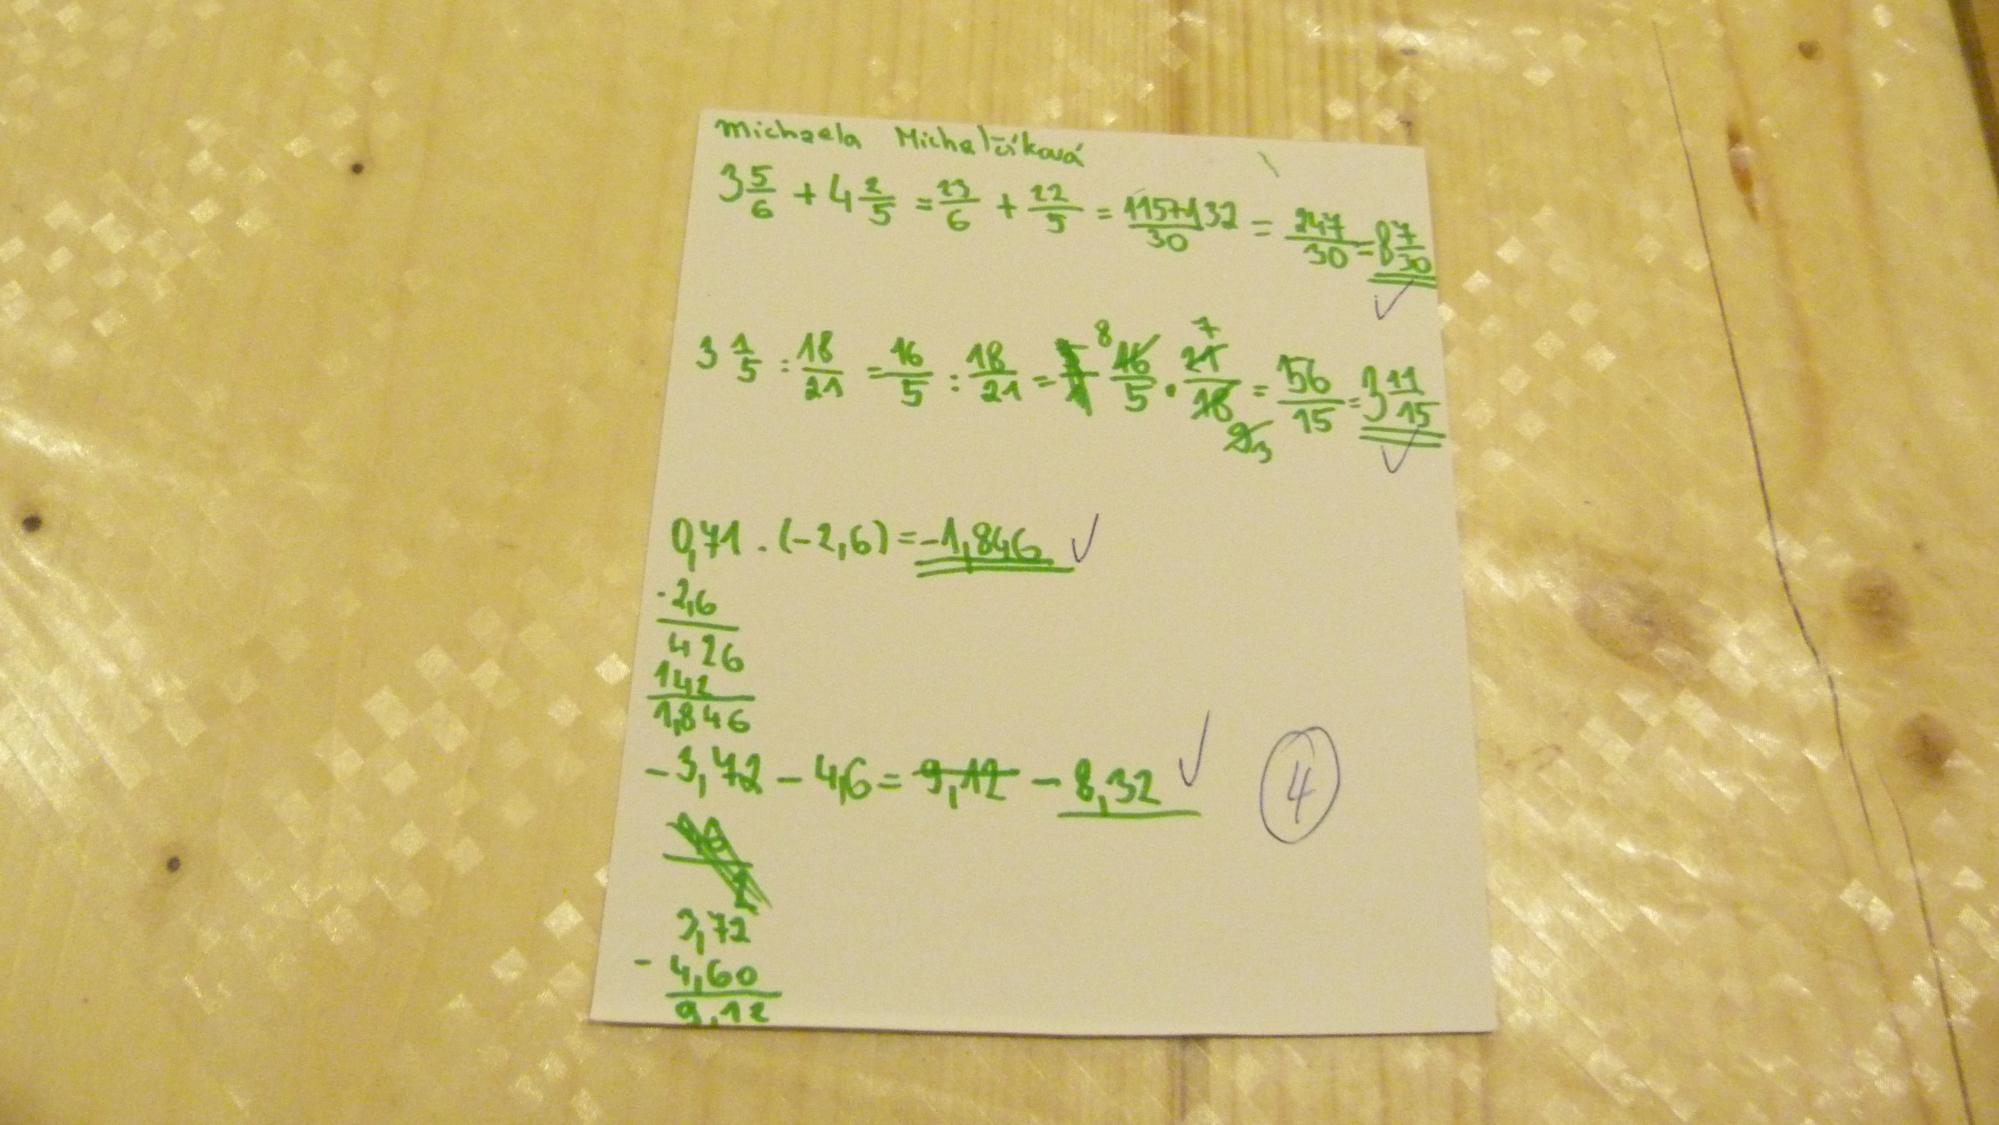 Michaela Michalčíková
3 5/6 + 4 2/5 = 23/6 + 22/5 = 115+132/30 = 247/30 = 8 7/30
✓
3 1/5 : 18/21 = 16/5 : 18/21 = 8 16/5 · 7 21/18 9 3 = 56/15 = 3 11/15
✓
0,71 . (-2,6) = -1,846 ✓
·2,6
426
142
1,846
-3,72 - 4,6 = 9,12 - 8,32 ✓
4
3,72
- 4,60
9,12